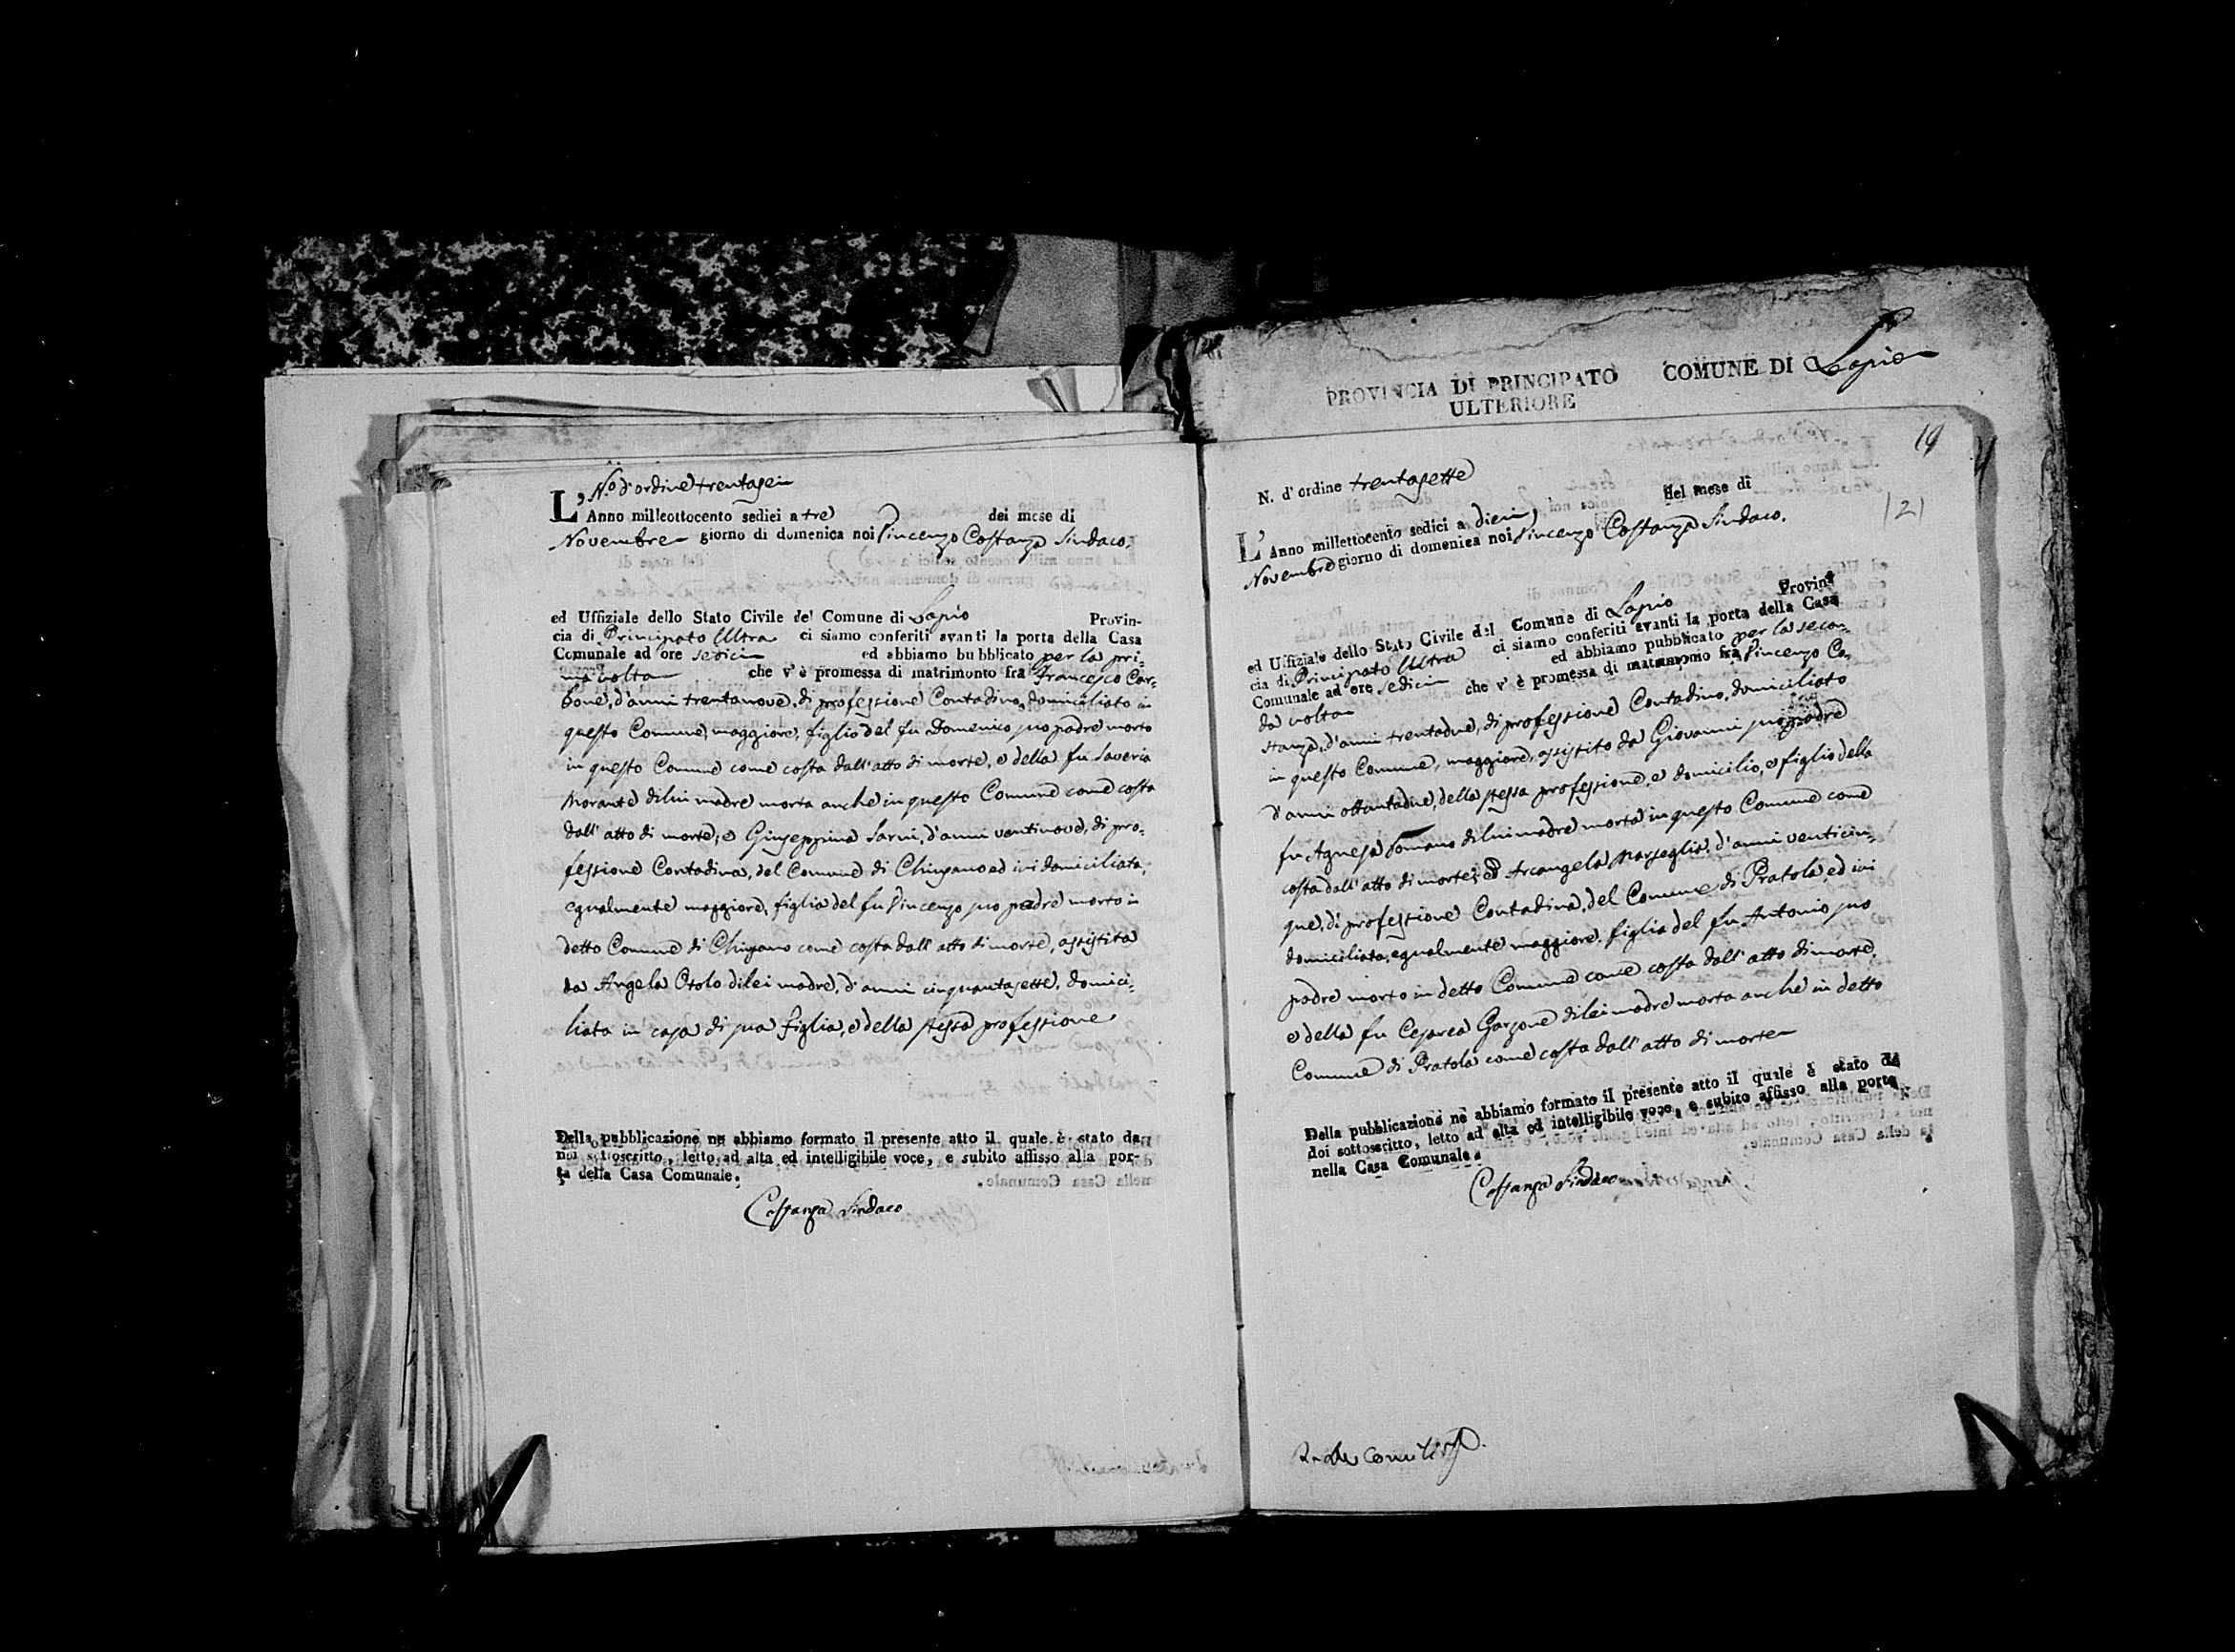 N.o d'ordine trentasei
L'Anno milleottocento sedici a tre del mese di
Novembre giorno di domenica noi Vincenzo Costanza Sindaco,
ed Uffiziale dello Stato Civile del Comune di Lapio Provin-
cia di Principato Ultra ci siamo conferiti avanti la porta della Casa
Comunale ad ore sedici ed abbiamo bubblicato per la pri=
ma volta che v'è promessa di matrimonto fra Francesco Car=
bone, d'anni trentanove, di professione Contadino, domiciliato in
questo Comune, maggiore, figlio del fu Domenico suo padre morto
in questo Comune come costa dall'atto di morte, e della fu Saveria
Morante di lui madre morta anche in questo Comune come costa
dall'atto di morte; e Giuseppina Sarni, d'anni ventinove, di pro=
fessione Contadina, del Comune di Chiusano ed ivi domiciliata,
egualmente maggiore, figlia del fu Vincenzo suo padre morto in
detto Comune di Chiusano come costa dall'atto di morte, assistita
da Angela Otolo di lei madre, d'anni cinquantasette, domici=
liata in casa di sua figlia, e della stessa professione
Della pubblicazione ne abbiamo formato il presente atto il quale è stato da
noi sottoscritto, letto ad alta ed intelligibile voce, e subito affisso alla por-
ta della Casa Comunale.
Costanza Sindaco
PROVINCIA DI PRINCIPATO COMUNE DI Lapio
ULTERIORE
19
121
N. d'ordine trentasette
L'Anno millettocento sedici a dieci del mese di
Novembre giorno di domenica noi Vincenzo Costanza Sindaco,
ed Uffiziale dello Stato Civile del Comune di Lapio Provin-
cia di Principato Ultra ci siamo conferiti avanti la porta della Casa
Comunale ad ore sedici ed abbiamo pubblicato per la secon=
da volta che v'è promessa di matrimonio fra Vincenzo Co=
stanza, d'anni trentadue, di professione Contadino, domiciliato
in questo Comune, maggiore, assistito da Giovanni suo padre
d'anni ottantadue, della stessa professione, e domicilio, e figlio della
fu Agnesa Romano di lui madre morta in questo Comune come
costa dall'atto di morte; ed Arcangela Marseglia, d'anni venticin=
que, di professione Contadina, del Comune di Pratola, ed ivi
domiciliata, egualmente maggiore, figlia del fu Antonio suo
padre morto in detto Comune come costa dall'atto di morte,
e della fu Cesarea Garzone di lei madre morta anche in detto
Comune di Pratola come costa dall'atto di morte
Della pubblicazione ne abbiamo formato il presente atto il quale è stato da
doi sottoscritto, letto ad alta ed intelligibile voce, e subito affisso alla porta
nella Casa Comunale.
Costanza Sindaco